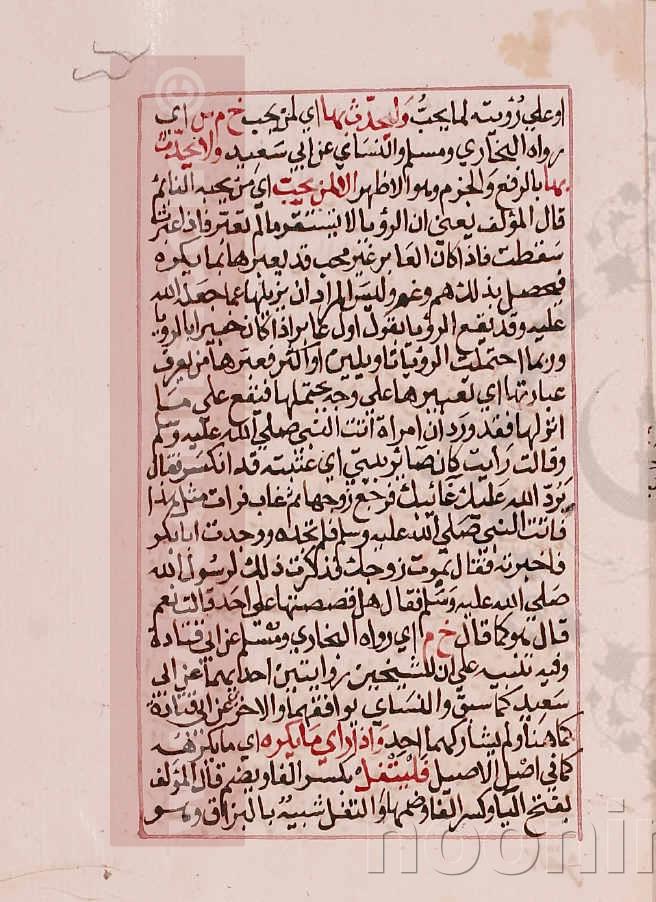 او على رؤيته لما يحب وليحدث بها اي لمن يحب خ م س اي
رواه البخاري ومسلم والنساي عن ابي سعيد ولا يحدث
بها بالرفع والجزم وهو الاظهر الا لمن يحب اي من يحبه النائم
قال المؤلف يعني ان الرؤيا لا تستقر ما لم تعتبر فاذا عبرت
سقطت فاذا كان العابر غير محب قد يعبرها بما يكره
فيحصل بذلك هم وغم وليس المراد ان يزيلها عما جعله الله
عليه وقد تقع الرؤيا بقول اول عابر اذا كان خبيرا بالرؤيا
وربما احتملت الرؤيا تاويلين او اكثر فعبرها من يعرف
عبارتها اي تعبيرها على وجه يحتملها فتقع على ما
اولها فقد ورد ان امراة اتت النبي صلي الله عليه وسلم
وقالت رايت كان جائز بيتي اي عتبته قد انكسر فقال
يرد الله عليك غائبك فرجع زوجها ثم غاب فرات مثل هذا
فاتت النبي صلي الله عليه وسلم فلم تجده ووجدت ابا بكر
فاخبرته فقال يموت زوجك فذكرت ذلك لرسول الله
صلي الله عليه وسلم فقال هل قصصتها على احد قالت نعم
قال هو كما قال خ م اي رواه البخاري ومسلم عن ابي قتادة
وفيه تنبيه على ان للشيخين روايتين احداهما عن ابي
سعيد كما سبق والنساي يوافقهما والاخرى عن ابي قتادة
كما هنا ولم يشاركهما احد واذا راي ما يكره اي ما يكرهه
كما في اصل الاصيل فليتفل بكسر الفا ويضم قال المؤلف
بفتح اليا وكسر الفا وضمها والتفل شبيه بالبزاق وهو
noonin